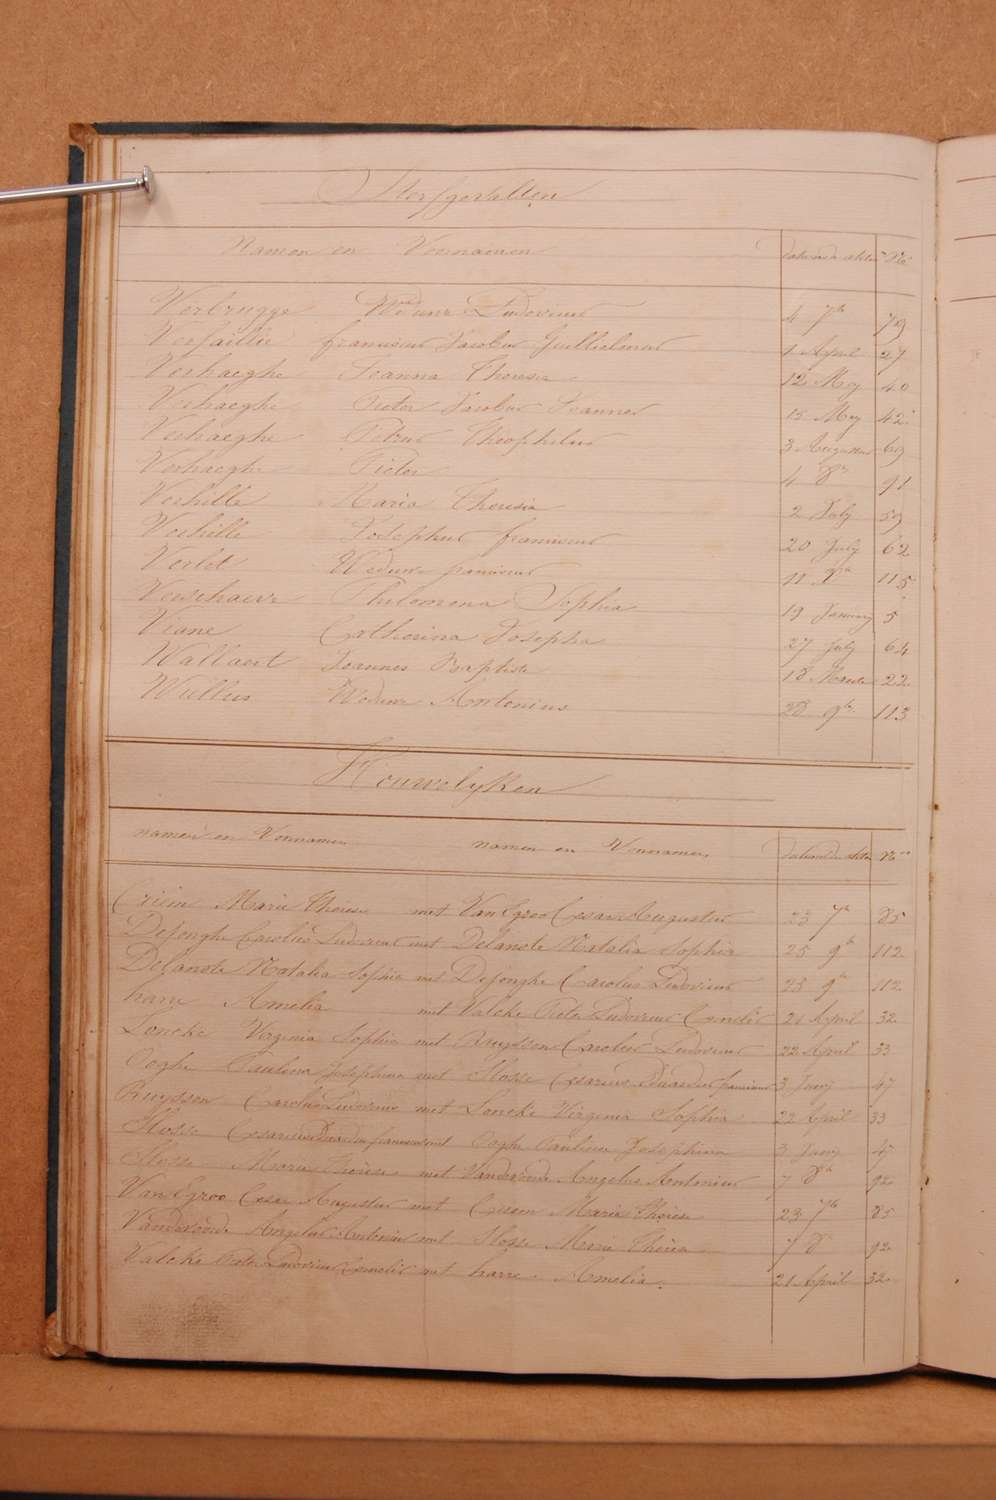 Sterfgevallen
Namen en Voornamen Datum der akten No
Verbrugge Wed.une Ludovicus 4 7br 79
Verfaillie franciscus Jacobus Guillielmus 1 April 27
Verhaeghe Joanna Theresia 12 Mey 40
Verhaeghe Pieter Jacobus Joannes 15 Mey 42
Verhaeghe Petrus Theophilus 3 Augustus 69
Verhaeghe Pieter 4 8br 91
Verhille Maria Theresia 2 July 59
Verhille Josephus franciscus 20 July 62
Verlet Weduwe franciscus 11 Xbr 115
Verschaeve Philomena Sophia 19 January 5
Viane Catherina Josepha 27 July 64
Wallaert Joannes Baptiste 18 Maerte 22
Wullus Weduwe Antonius 28 9br 113
Houwelyken
namen en Voornamen namen en Voornamen Datum der akten No
Marie Therese met Van Egroo Cesar Augustus 23 7br 85
Dejonghe Carolus Ludovicus met Delanote Natalia Sophia 25 9br 112
Delanote Natalia Sophia met Dejonghe Carolus Ludovicus 25 9br 112
harre Amelia met Valcke Pieter Ludovicus Cornelis 21 April 32
Loncke Virginia Sophia met Ruyssen Carolus Ludovicus 22 April 33
Ooghe Paulina Josephina met Hosse Cesarius Eduardus franciscus 3 Juny 47
Ruyssen Carolus Ludovicus met Loncke Virginia Sophia 22 April 33
Hosse Cesarius Eduardus franciscus met Ooghe Paulina Josephina 3 Juny 47
Hosse Marie Therese met Vandevoorde Angelus Antonius 7 8br 92
Van Egroo Cesar Augustus met Marie Therese 23 7br 85
Vandevoorde Angelus Antonius met Hosse Marie Theresa 7 8br 92
Valcke Pieter Ludovicus Cornelis met harre Amelia. 21 April 32